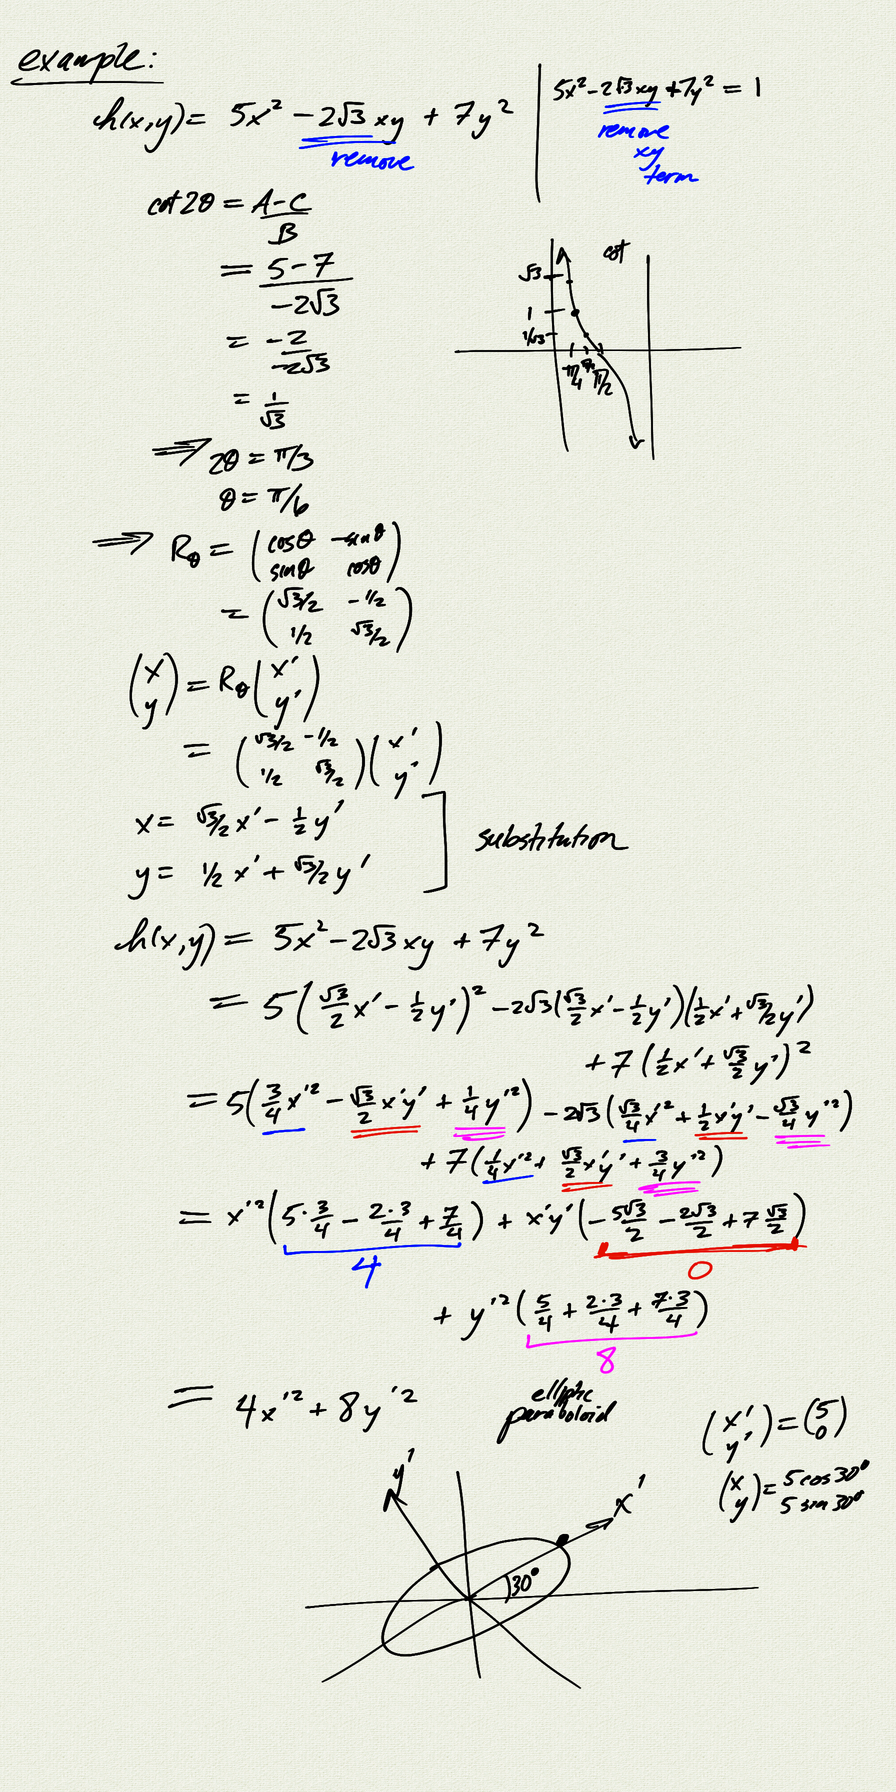 example:
h(x,y) = 5x² - 2√3 xy + 7y²
remove
5x² - 2√3 xy + 7y² = 1
remove
xy
term
cot 2θ = (A-C)/B
= (5-7)/(-2√3)
= -2/(-2√3)
= 1/√3
cot
√3
1
1/√3
π/4 π/3 π/2
⟹ 2θ = π/3
θ = π/6
⟹ R_θ = (cosθ -sinθ
sinθ cosθ)
= (√3/2 -1/2
1/2 √3/2)
(x
y) = R_θ (x'
y')
= (√3/2 -1/2
1/2 √3/2)(x'
y')
x = √3/2 x' - 1/2 y'
y = 1/2 x' + √3/2 y'
substitution
h(x,y) = 5x² - 2√3 xy + 7y²
= 5(√3/2 x' - 1/2 y')² - 2√3(√3/2 x' - 1/2 y')(1/2 x' + √3/2 y')
+ 7(1/2 x' + √3/2 y')²
= 5(3/4 x'² - √3/2 x'y' + 1/4 y'²) - 2√3(√3/4 x'² + 1/2 x'y' - √3/4 y'²)
+ 7(1/4 x'² + √3/2 x'y' + 3/4 y'²)
= x'²(5·3/4 - 2·3/4 + 7/4) + x'y'(-5√3/2 - 2√3/2 + 7√3/2)
4
0
+ y'²(5/4 + 2·3/4 + 7·3/4)
8
= 4x'² + 8y'²
elliptic
paraboloid
(x'
y') = (5
0)
(x
y) = 5 cos 30°
5 sin 30°
y'
x'
30°